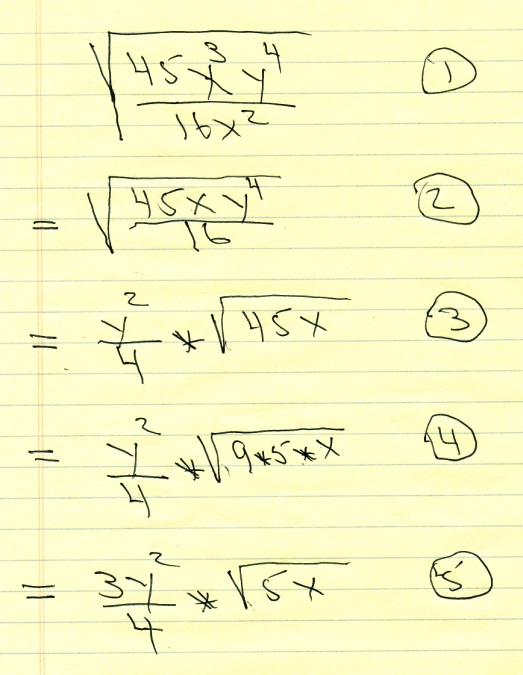 √(45x³y⁴ / 16x²) ①
= √(45xy⁴ / 16) ②
= y²/4 * √(45x) ③
= y²/4 * √(9*5*x) ④
= 3y²/4 * √(5x) ⑤